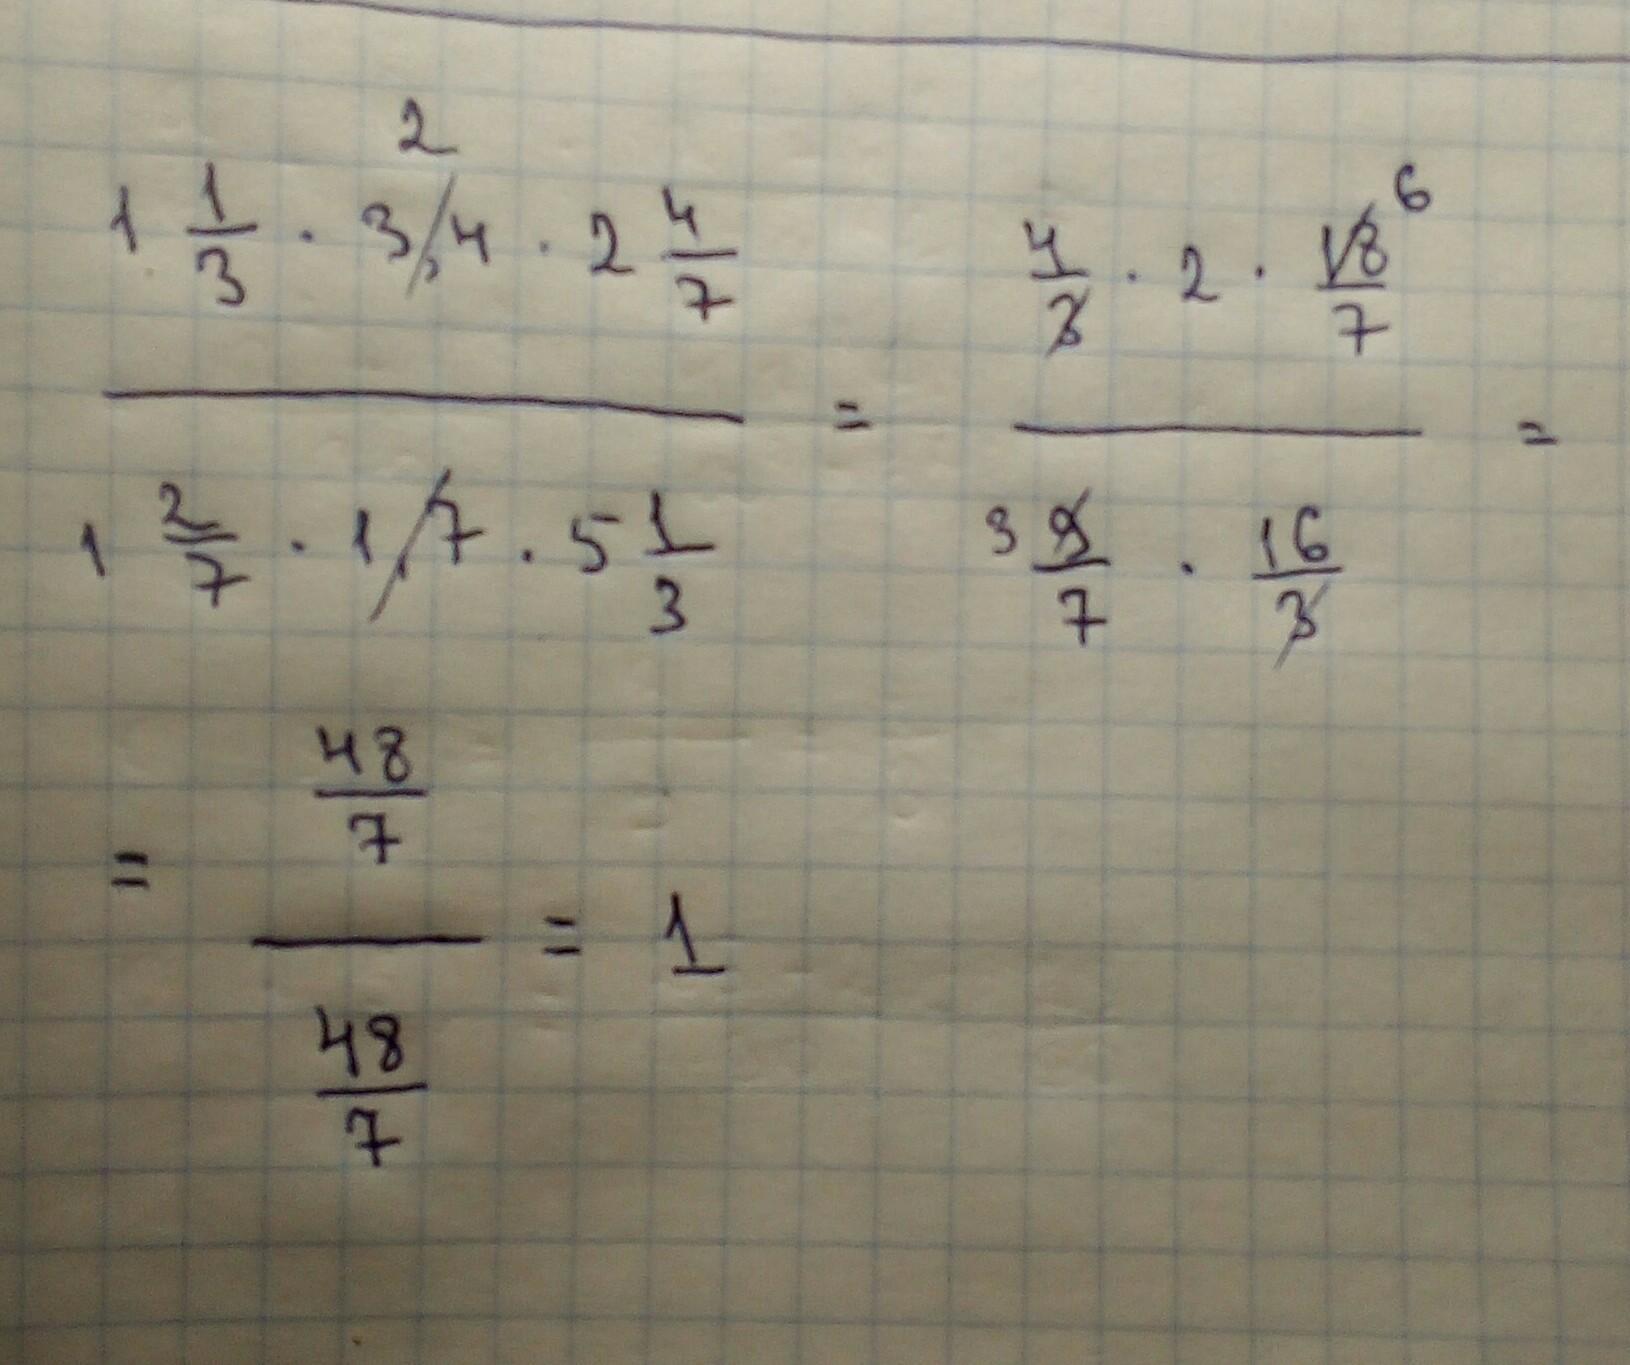 2
1 1/3 · 3,4 · 2 4/7 / 1 2/7 · 1,7 · 5 1/3 = 4/3 · 2 · 18/7 6 / 3 9/7 · 16/3 =
= 48/7 / 48/7 = 1